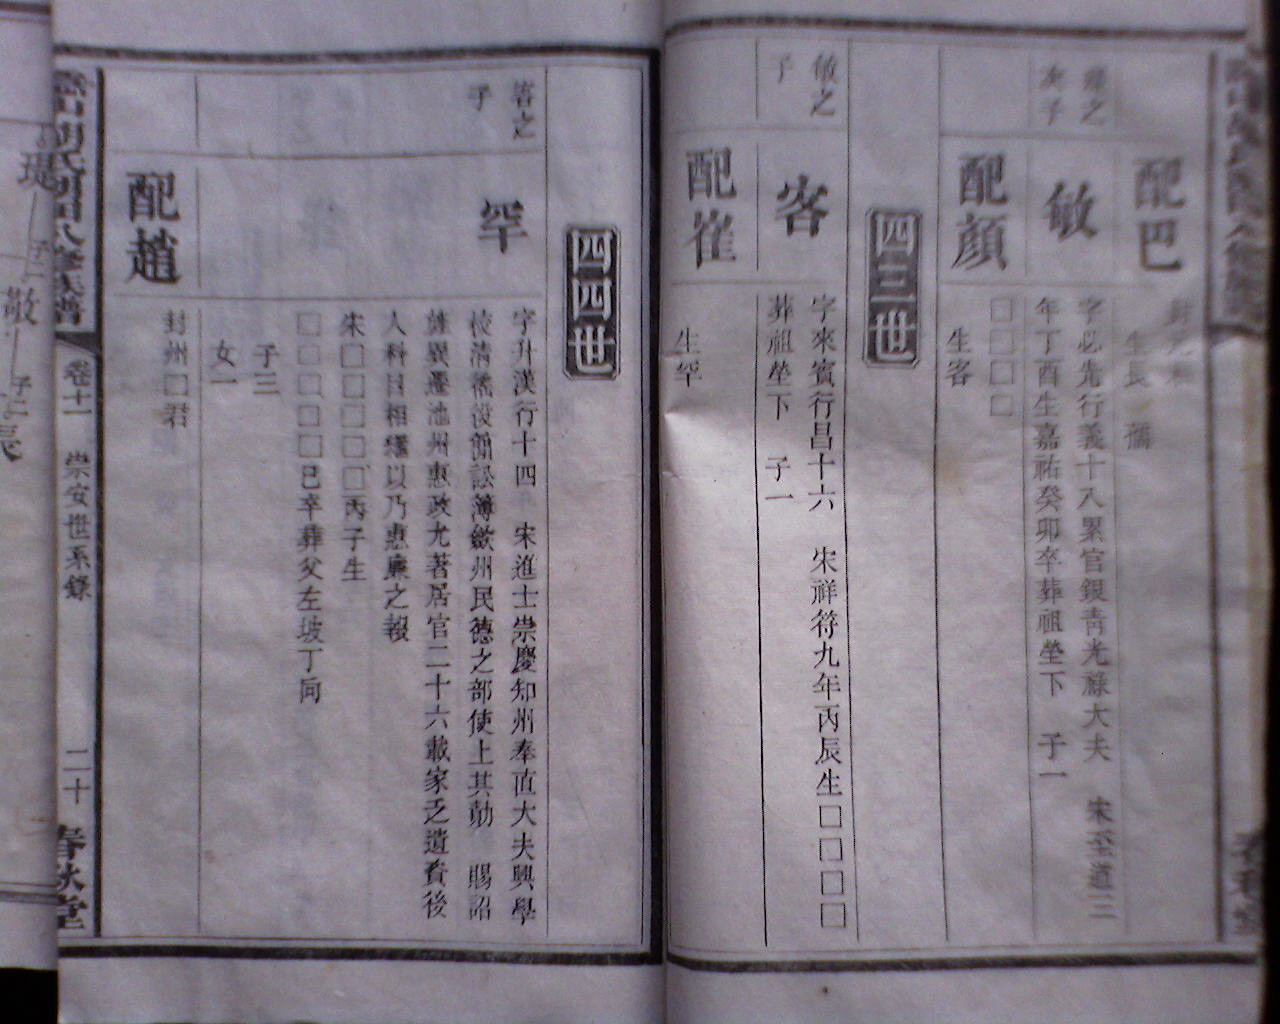 配巴
生長
□之
次子
敏
字必先行義十八累官銀青光祿大夫　宋至道三
年丁酉生嘉祐癸卯卒葬祖塋下　子一
□□□□
配顏
生客
四三世
敏之
子
客
字來賓行昌十六　宋祥符九年丙辰生□□□□
葬祖塋下　子一
配崔
生罕
四四世
客之
子
罕
字升漢行十四　宋進士崇慶知州奉直大夫興學
校清徭役簡訟薄斂州民德之部使上其勛　賜詔
雄異遷池州惠政尤著居官二十六載家乏遺資後
人科目相繼以乃惠廉之報
宋□□□□□丙子生
□□□□□巳卒葬父左坡丁向
子三
女一
配趙
封州□君
卷十一　崇安世系錄
二十　春秋堂